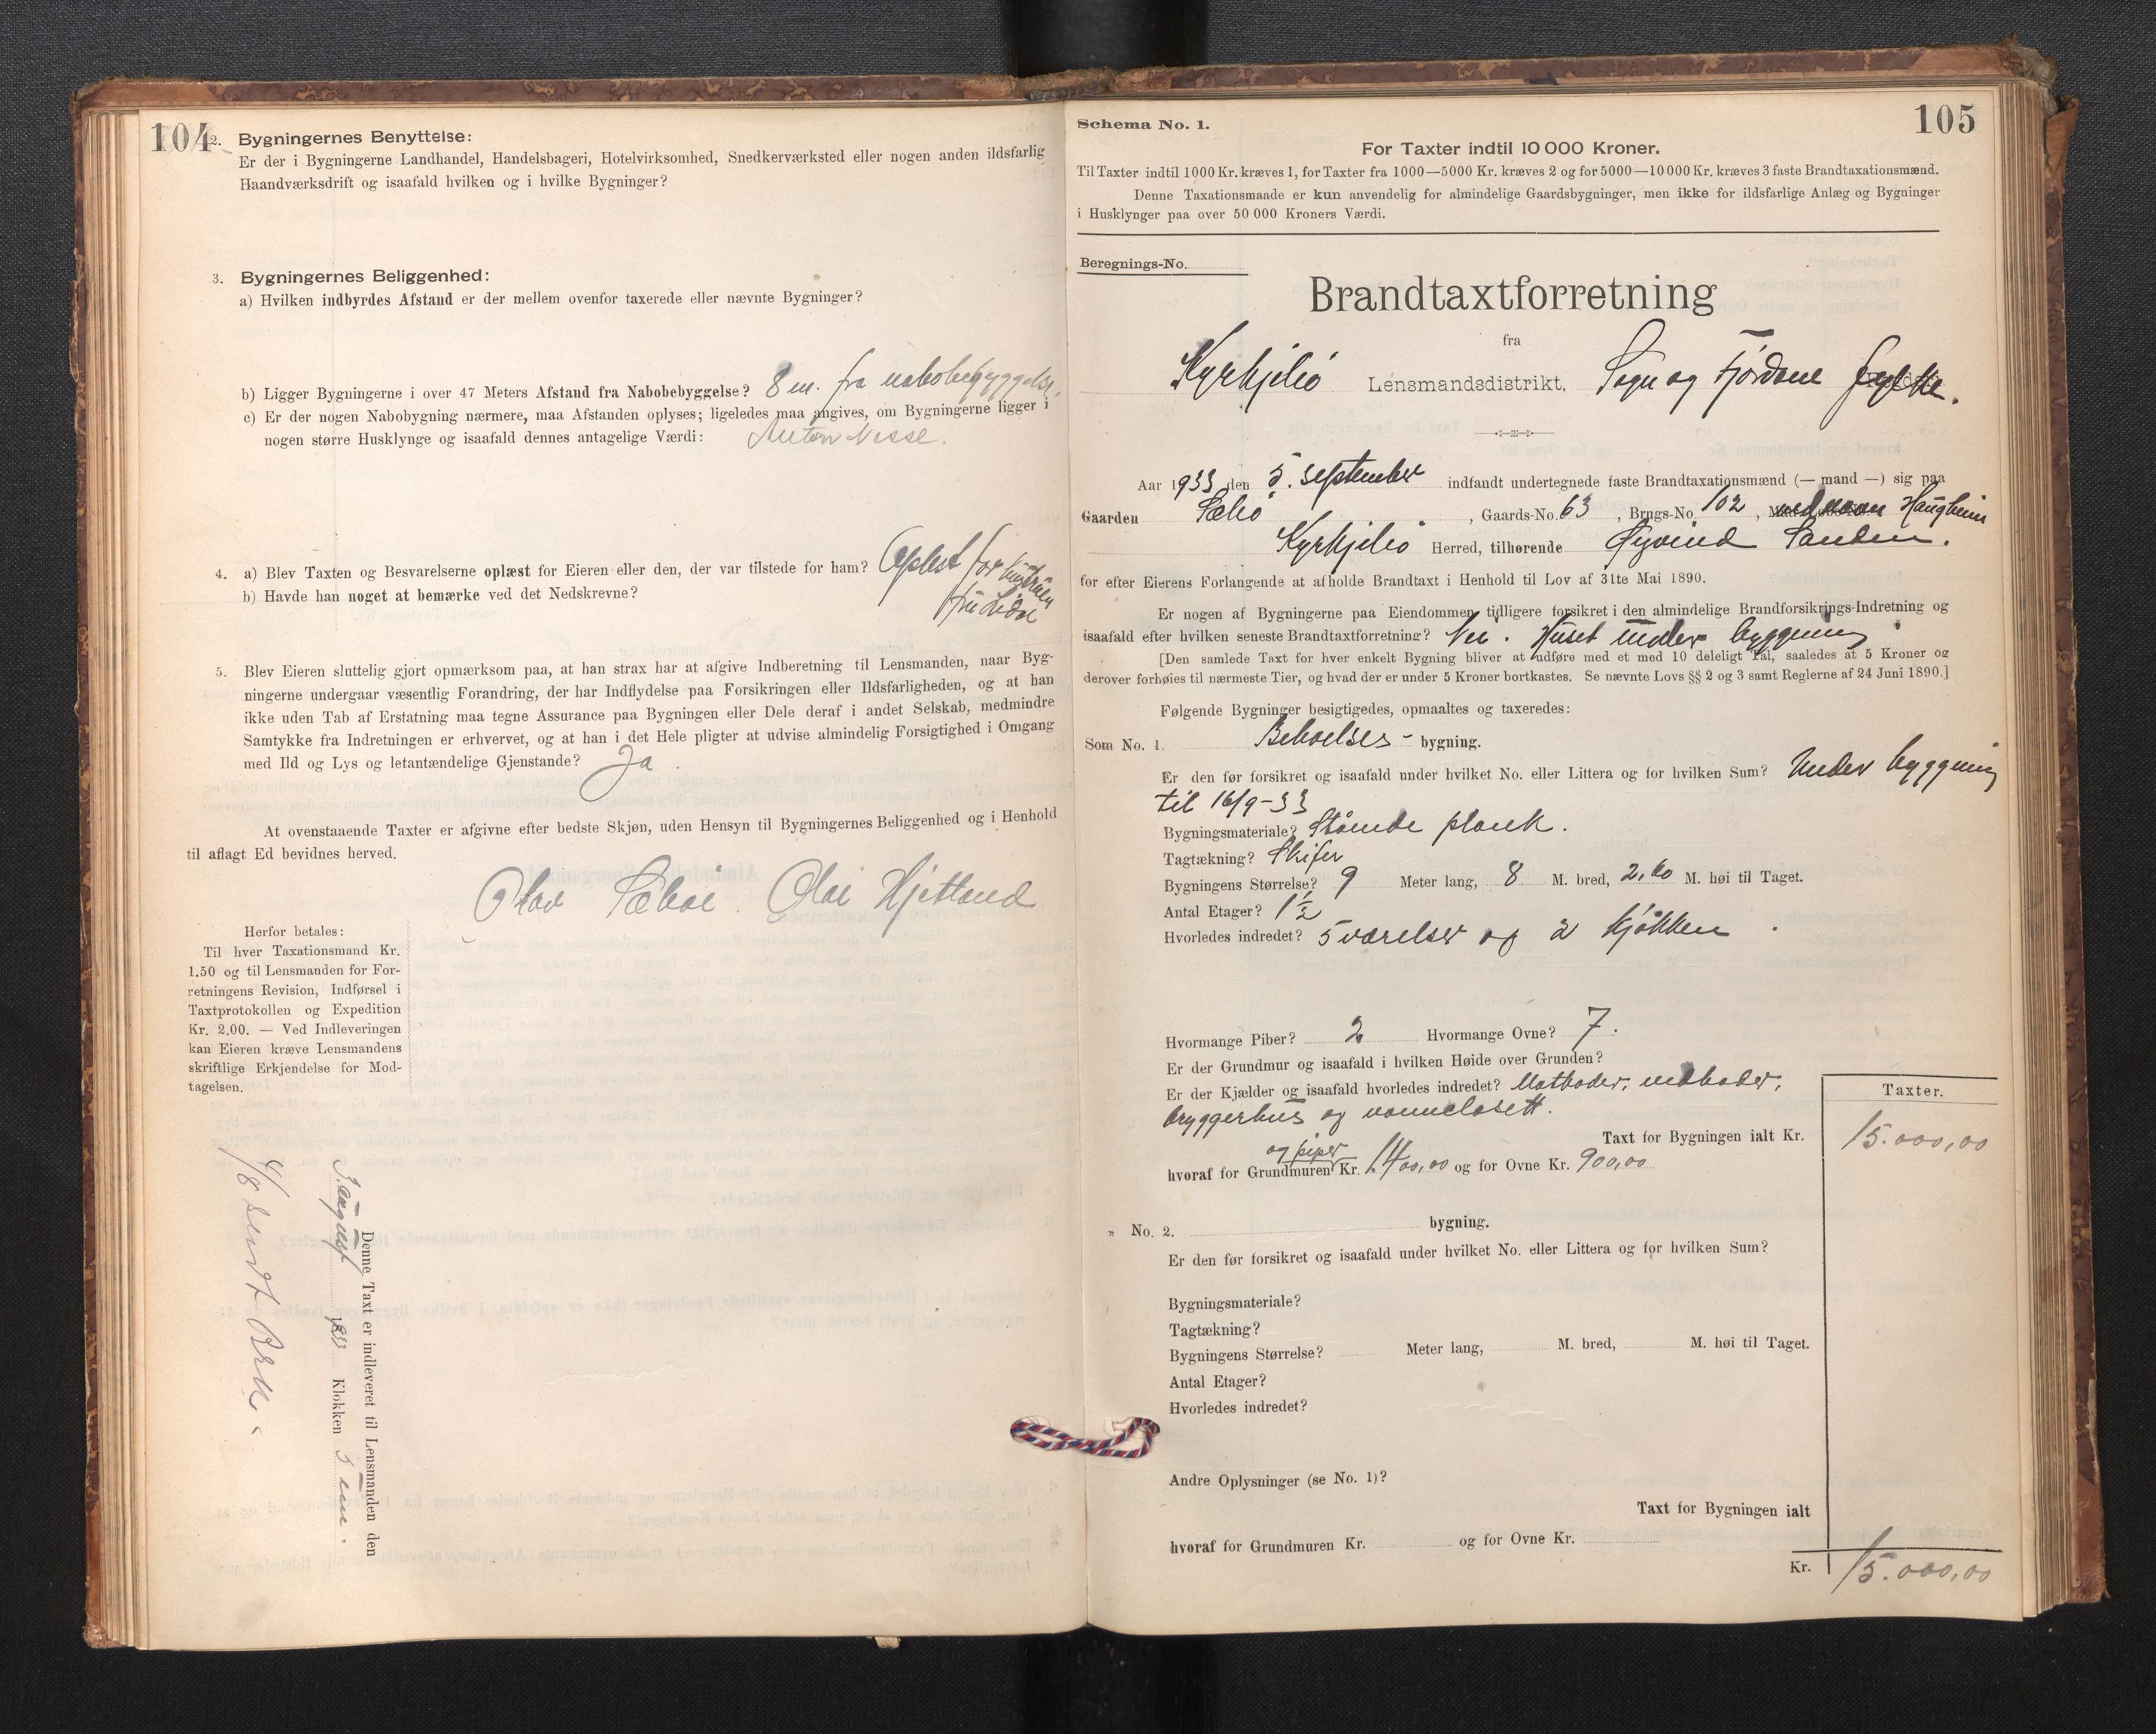 104
2. Bygningernes Benyttelse:
Er der i Bygningerne Landhandel, Handelsbageri, Hotelvirksomhed, Snedkerværksted eller nogen anden ildsfarlig
Haandværksdrift og isaafald hvilken og i hvilke Bygninger?
3. Bygningernes Beliggenhed:
a) Hvilken indbyrdes Afstand er der mellem ovenfor taxerede eller nævnte Bygninger?
b) Ligger Bygningerne i over 47 Meters Afstand fra Nabobebyggelse? 8 m. fra nabobebyggelse.
c) Er der nogen Nabobygning nærmere, maa Afstanden oplyses; ligeledes maa angives, om Bygningerne ligger i
nogen større Husklynge og isaafald dennes antagelige Værdi: Anton Nesse.
4. a) Blev Taxten og Besvarelserne oplæst for Eieren eller den, der var tilstede for ham? Oplest for
b) Havde han noget at bemærke ved det Nedskrevne?
5. Blev Eieren sluttelig gjort opmærksom paa, at han strax har at afgive Indberetning til Lensmanden, naar Byg-
ningerne undergaar væsentlig Forandring, der har Indflydelse paa Forsikringen eller Ildsfarligheden, og at han
ikke uden Tab af Erstatning maa tegne Assurance paa Bygningen eller Dele deraf i andet Selskab, medmindre
Samtykke fra Indretningen er erhvervet, og at han i det Hele pligter at udvise almindelig Forsigtighed i Omgang
med Ild og Lys og letantændelige Gjenstande? Ja.
At ovenstaaende Taxter er afgivne efter bedste Skjøn, uden Hensyn til Bygningernes Beliggenhed og i Henhold
til aflagt Ed bevidnes herved.
Olav Sæbøe. Olai Hjetland
Herfor betales:
Til hver Taxationsmand Kr.
1.50 og til Lensmanden for For-
retningens Revision, Indførsel i
Taxtprotokollen og Expedition
Kr. 2.00. — Ved Indleveringen
kan Eieren kræve Lensmandens
skriftlige Erkjendelse for Mod-
tagelsen.
Denne Taxt er indleveret til Lensmanden den
1933 Klokken 5 em.
sendt Brk.
105
Schema No. 1.
For Taxter indtil 10 000 Kroner.
Til Taxter indtil 1000 Kr. kræves 1, for Taxter fra 1000—5000 Kr. kræves 2 og for 5000—10 000 Kr. kræves 3 faste Brandtaxationsmænd.
Denne Taxationsmaade er kun anvendelig for almindelige Gaardsbygninger, men ikke for ildsfarlige Anlæg og Bygninger
i Husklynger paa over 50 000 Kroners Værdi.
Beregnings-No.
Brandtaxtforretning
fra
Kyrkjebø Lensmandsdistrikt, Sogn og Fjordane fylke.
Aar 1933 den 5. september indfandt undertegnede faste Brandtaxationsmænd (— mand —) sig paa
Gaarden Sæbø, Gaards-No. 63, Brugs-No. 102, ved navn Haugheim
Kyrkjebø Herred, tilhørende Øyvind Sanden.
for efter Eierens Forlangende at afholde Brandtaxt i Henhold til Lov af 31te Mai 1890.
Er nogen af Bygningerne paa Eiendommen tidligere forsikret i den almindelige Brandforsikrings-Indretning og
isaafald efter hvilken seneste Brandtaxtforretning? Nei. Huset under bygging
[Den samlede Taxt for hver enkelt Bygning bliver at udføre med et med 10 deleligt Tal, saaledes at 5 Kroner og
derover forhøies til nærmeste Tier, og hvad der er under 5 Kroner bortkastes. Se nævnte Lovs §§ 2 og 3 samt Reglerne af 24 Juni 1890.]
Følgende Bygninger besigtigedes, opmaaltes og taxeredes:
Som No. 1. Beboelses- bygning.
Er den før forsikret og isaafald under hvilket No. eller Littera og for hvilken Sum? Under bygging
til 16/9-33
Bygningsmateriale? Stående plank.
Tagtækning? Skifer
Bygningens Størrelse? 9 Meter lang, 8 M. bred, 2,60 M. høi til Taget.
Antal Etager? 1½
Hvorledes indredet? 5 værelser og 2 kjøkken.
Hvormange Piber? 2 Hvormange Ovne? 7.
Er der Grundmur og isaafald i hvilken Høide over Grunden?
Er der Kjælder og isaafald hvorledes indredet? Matboder, vedboder,
bryggerhus og vannclosett.
Taxter.
Taxt for Bygningen ialt Kr. 15.000,00
og piper
hvoraf for Grundmuren Kr. 1400,00 og for Ovne Kr. 900,00
„ No. 2. bygning.
Er den før forsikret og isaafald under hvilket No. eller Littera og for hvilken Sum?
Bygningsmateriale?
Tagtækning?
Bygningens Størrelse? Meter lang, M. bred, M. høi til Taget.
Antal Etager?
Hvorledes indredet?
Andre Oplysninger (se No. 1)?
Taxt for Bygningen ialt
hvoraf for Grundmuren Kr. og for Ovne Kr.
Kr. 15.000,00